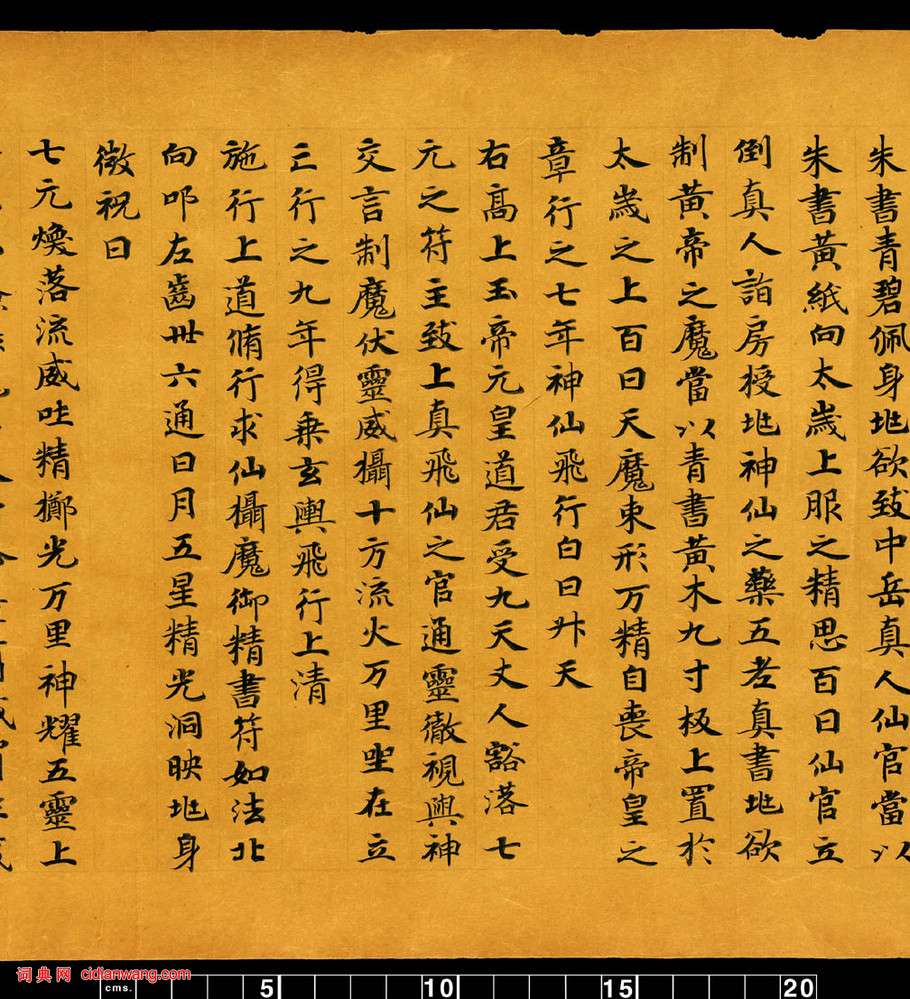 朱書青碧佩身也欲致中岳真人仙官當以
朱書黃紙向太歲上服之精思百日仙官立
倒真人詣房授也神仙之藥五老真書也欲
制黃帝之魔當以青書黃木九寸板上置於
太歲之上百日天魔束形万精自喪帝皇之
章行之七年神仙飛行白日升天
右高上玉帝元皇道君受九天丈人豁落七
元之符主致上真飛仙之官通靈徹視與神
交言制魔伏靈威攝十方流火万里坐在立
三行之九年得乘玄輿飛行上清
施行上道脩行求仙攝魔御精書符如法北
向叩左齒卅六通日月五星精光洞映也身
微祝曰
七元煥落流威吐精擲光万里神耀五靈上
词典网 cidianwang.com
cms. 5 10 15 20